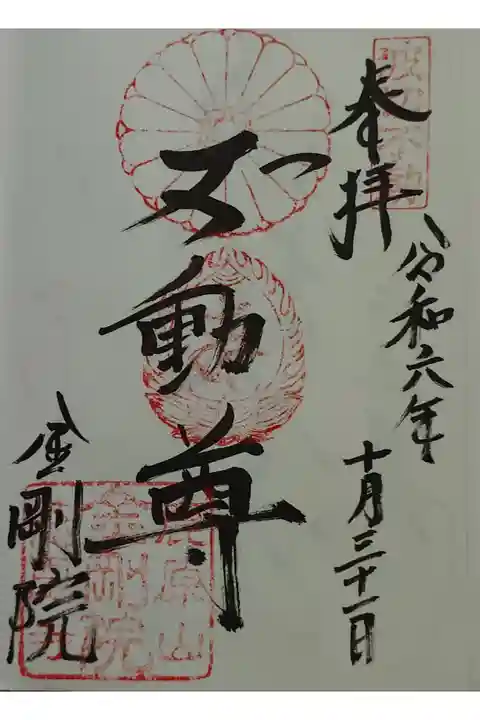 奉拝
令和六年
十月三十一日
不動尊
金剛院
鹿原山
金剛院